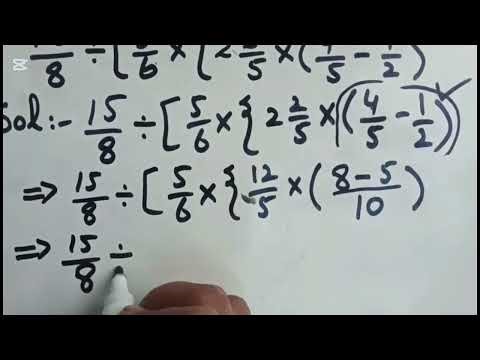 /8 ÷ [ /6 × { 2 /5 × ( 4/5 − 1/2 )
Sol:- 15/8 ÷ [ 5/6 × { 2 2/5 × ( 4/5 − 1/2 )
⇒ 15/8 ÷ [ 5/6 × { 12/5 × ( 8 − 5/10 )
⇒ 15/8 ÷